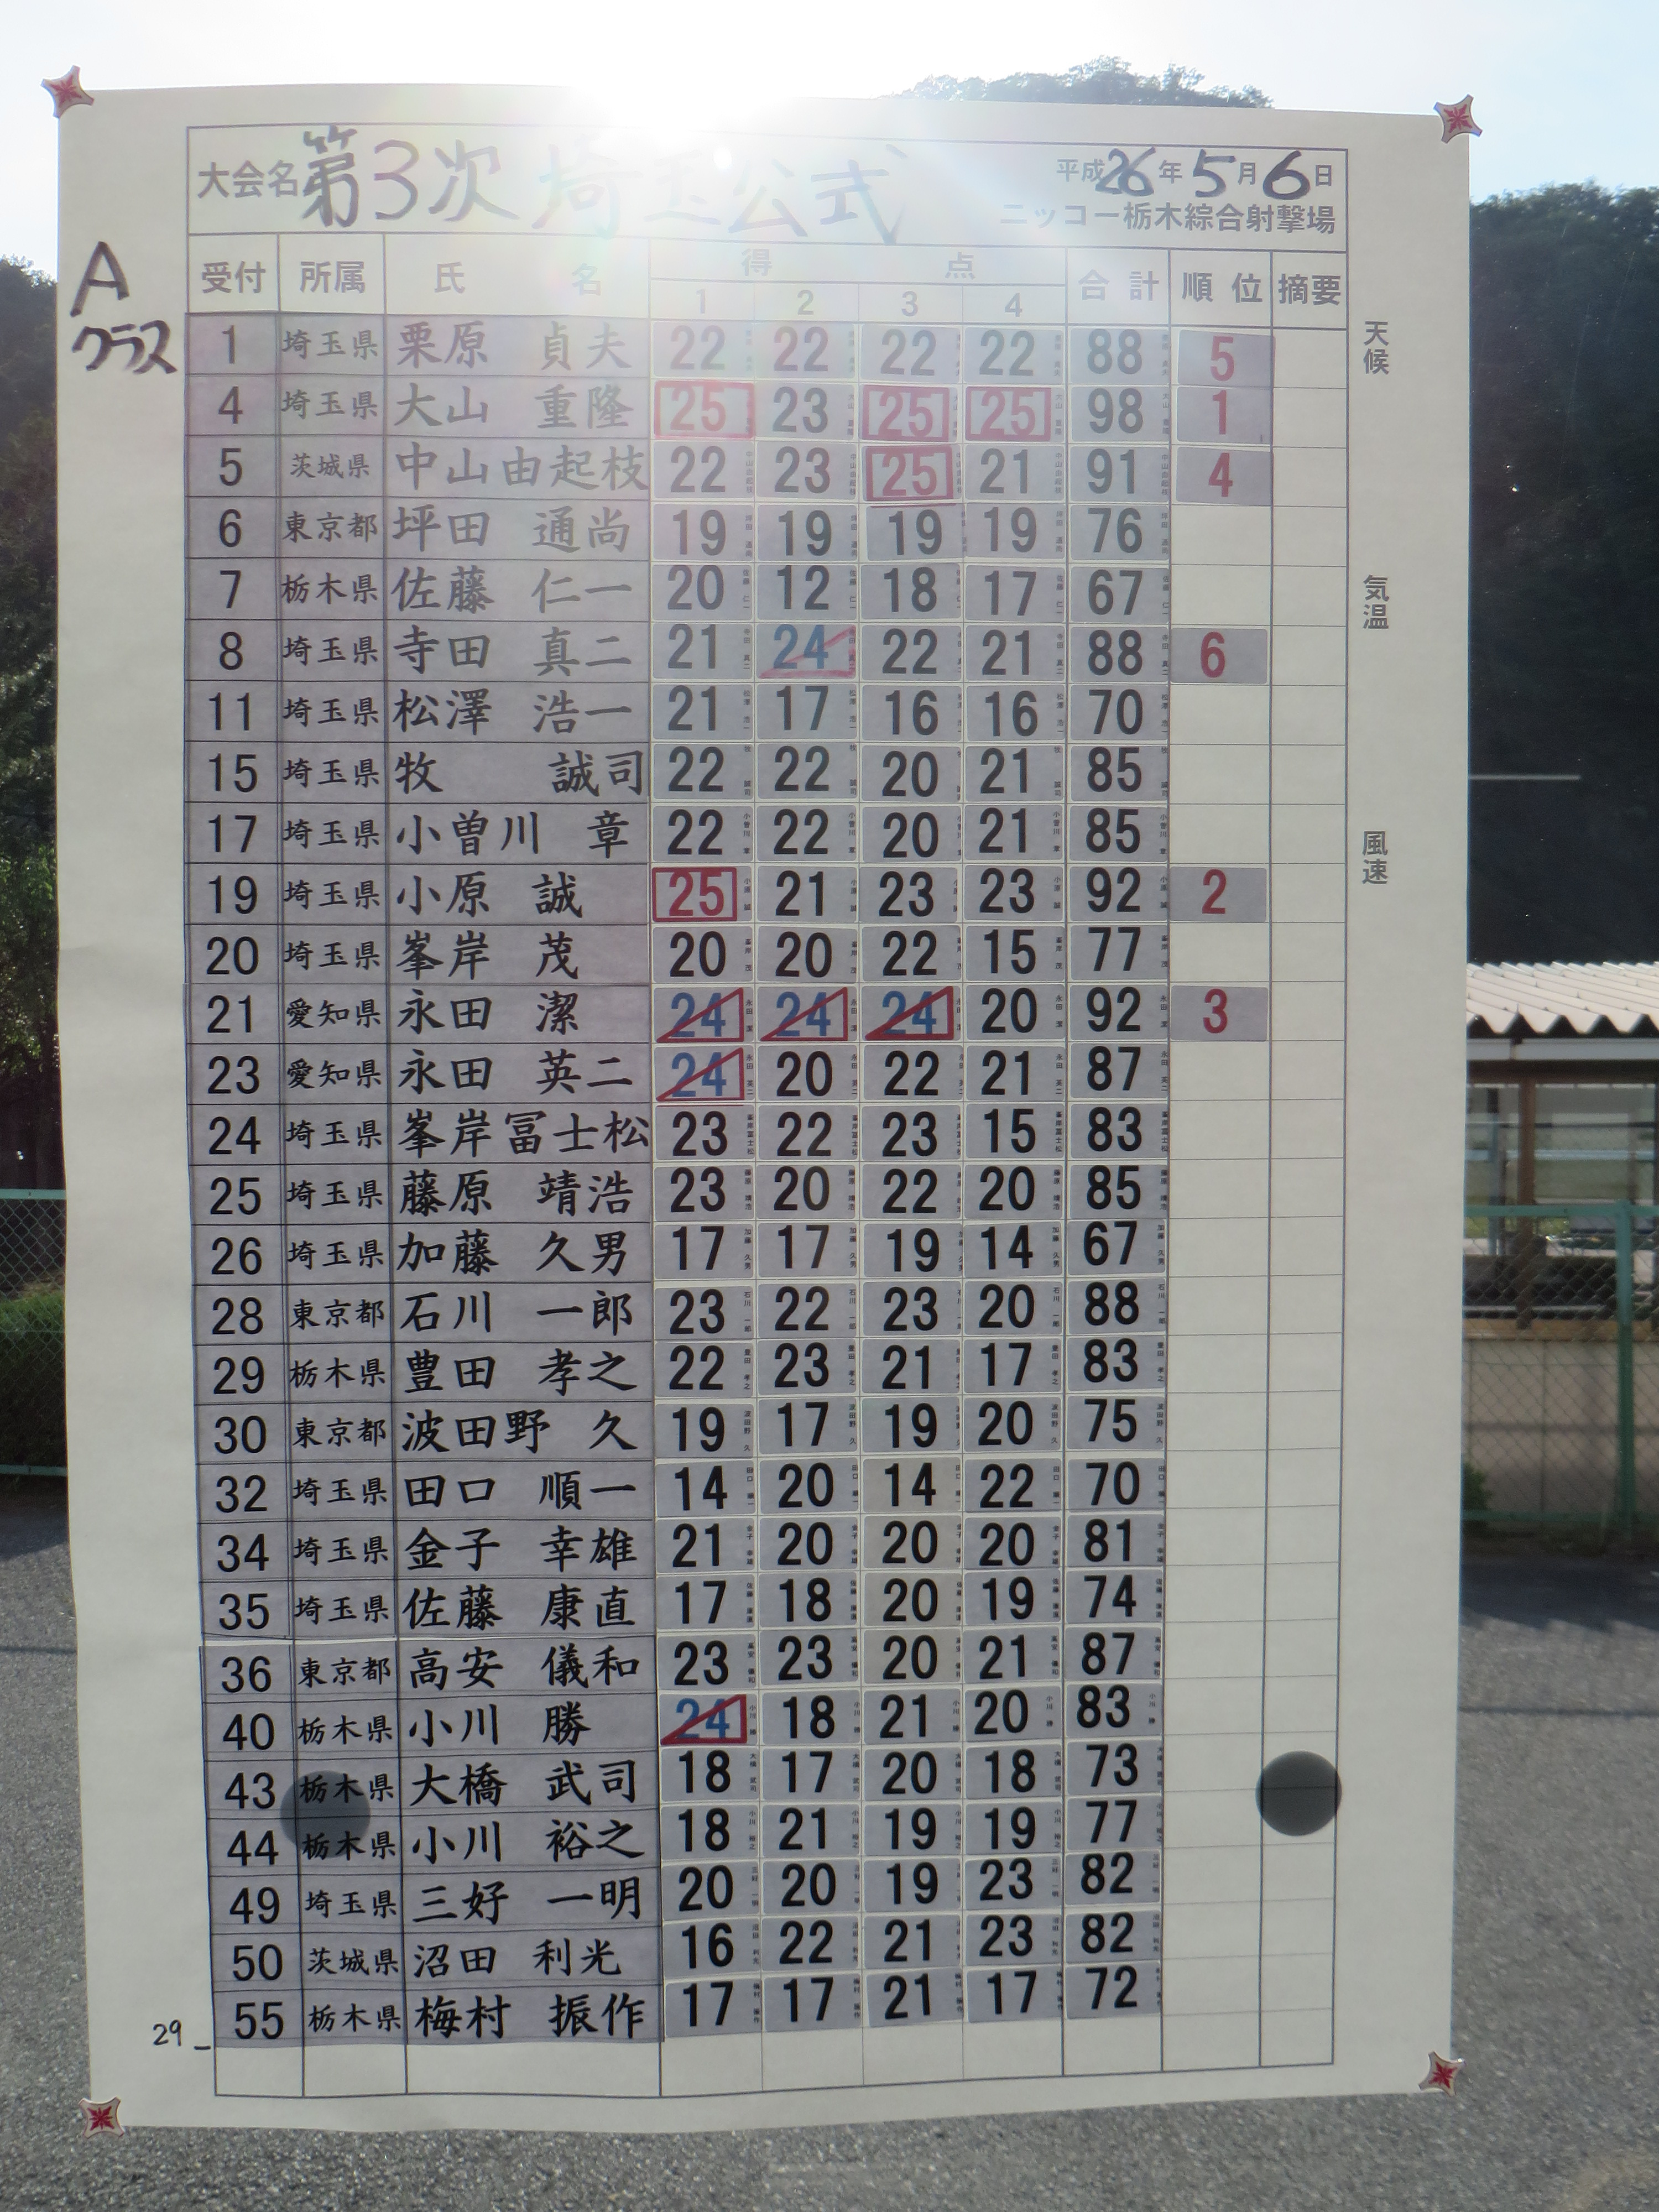 大会名 第3次 埼玉公式 平成26年5月6日
ニッコー栃木綜合射撃場
Aクラス
受付 所属 氏名 得点 合計 順位 摘要
1 2 3 4
1 埼玉県 栗原 貞夫 22 22 22 22 88 5
4 埼玉県 大山 重隆 25 23 25 25 98 1
5 茨城県 中山由起枝 22 23 25 21 91 4
6 東京都 坪田 通尚 19 19 19 19 76
7 栃木県 佐藤 仁一 20 12 18 17 67
8 埼玉県 寺田 真二 21 24 22 21 88 6
11 埼玉県 松澤 浩一 21 17 16 16 70
15 埼玉県 牧 誠司 22 22 20 21 85
17 埼玉県 小曽川 章 22 22 20 21 85
19 埼玉県 小原 誠 25 21 23 23 92 2
20 埼玉県 峯岸 茂 20 20 22 15 77
21 愛知県 永田 潔 24 24 24 20 92 3
23 愛知県 永田 英二 24 20 22 21 87
24 埼玉県 峯岸冨士松 23 22 23 15 83
25 埼玉県 藤原 靖浩 23 20 22 20 85
26 埼玉県 加藤 久男 17 17 19 14 67
28 東京都 石川 一郎 23 22 23 20 88
29 栃木県 豊田 孝之 22 23 21 17 83
30 東京都 波田野 久 19 17 19 20 75
32 埼玉県 田口 順一 14 20 14 22 70
34 埼玉県 金子 幸雄 21 20 20 20 81
35 埼玉県 佐藤 康直 17 18 20 19 74
36 東京都 高安 儀和 23 23 20 21 87
40 栃木県 小川 勝 24 18 21 20 83
43 栃木県 大橋 武司 18 17 20 18 73
44 栃木県 小川 裕之 18 21 19 19 77
49 埼玉県 三好 一明 20 20 19 23 82
50 茨城県 沼田 利光 16 22 21 23 82
55 栃木県 梅村 振作 17 17 21 17 72
29
天候
気温
風速